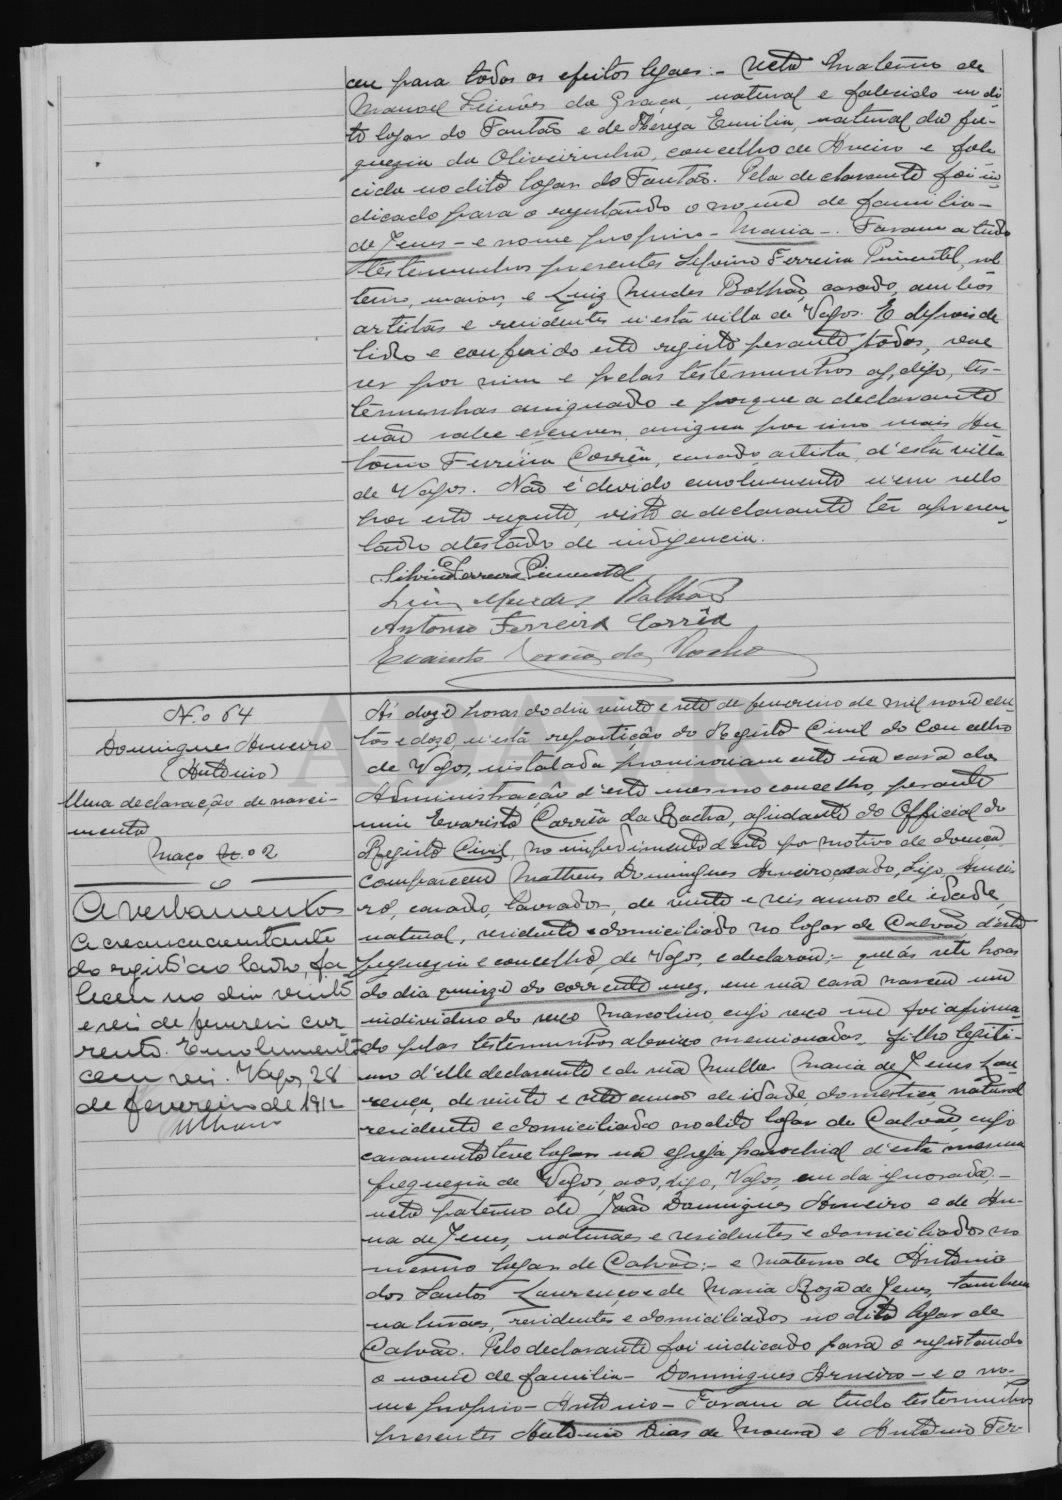 ceu para todos os efeitos legaes:- Neta materno de
Manoel Simões da Graça, natural e falecido no di-
to logar do Fontão e de Thereza Emilia, natural da fre-
guezia da Oliveirinha, concelho de Aveiro e fale-
cida no dito logar do Fontão. Pela declarante foi in-
dicado para o registando o nome de familia -
de Jesus - e nome proprio - Maria -. Foram a tudo
testemunhas presentes Silvino Ferreira Pimentel, sol-
teiro, maior, e Luiz Mendes Bolhão, casado, ambos
artistas e residentes n'esta villa de Vagos. E depois de
lido e conferido este registo perante todos, vae
ser por mim e pelas testemunhos as, digo, tes-
temunhas assignado e porque a declarante
não sabe escrever assigna por isso mais An-
tonio Ferreira Corrêa, casado, artista, d'esta villa
de Vagos. Não é devido emolumento nem sello
por este registo, visto a declarante ter apresen-
tado atestado de indigencia.
Silvino Ferreira Pimentel
Luiz Mendes Bolhão
Antonio Ferreira Corrêa
Evaristo Corrêa da Rocha
N.o 64
Domingues Arneiro
(Antonio)
Uma declaração de nasci-
mento
Maço n.o 2
Averbamento
A creança constante
do registo ao lado, fa-
leceu no dia vinte
e seis de fevereiro cor-
rente. Emolumento
cem reis. Vagos 28
de fevereiro de 1912
A's doze horas do dia vinte e sete de fevereiro de mil nove cen-
tos e doze, n'esta repartição do Registo Civil do Concelho
de Vagos, instalada provisoriamente na casa da
Administração d'este mesmo concelho, perante
mim Evaristo Corrêa da Rocha, ajudante do Official do
Registo Civil, no impedimento d'este por motivo de doença
compareceu Matheus Domingues Arneiro, casado, digo, Arnei-
ro, casado, lavrador, de vinte e seis annos de idade,
natural, residente e domiciliado no logar de Calvão d'esta
freguezia e concelho, de Vagos, e declarou:- que ás sete horas
do dia quinze do corrente mez, em sua casa nasceu um
individuo do sexo masculino, cujo sexo me foi afirma-
do pelas testemunhas abaixo mencionadas, filho legiti-
mo d'elle declarante e de sua mulher Maria de Jesus Lou-
rença, de vinte e sete annos de idade, domestica, natural
residente e domiciliada no dito logar de Calvão, cujo
casamento teve logar na egreja parochial d'esta mesma
freguezia de Vagos, aos, digo, Vagos, em dia ignorado, -
neto paterno de João Domingues Arneiro e de An-
na de Jesus, naturaes e residentes e domiciliados no
mesmo logar de Calvão:- e materno de Antonio
dos Santos Lourenço e de Maria Roza de Jesus, tambem
naturaes, residentes e domiciliados no dito logar de
Calvão. Pelo declarante foi indicado para o registando
o nome de familia - Domingues Arneiro - e o no-
me proprio - Antonio - Foram a tudo testemunhas
presentes Antonio Dias de Moura e Antonio Fer-